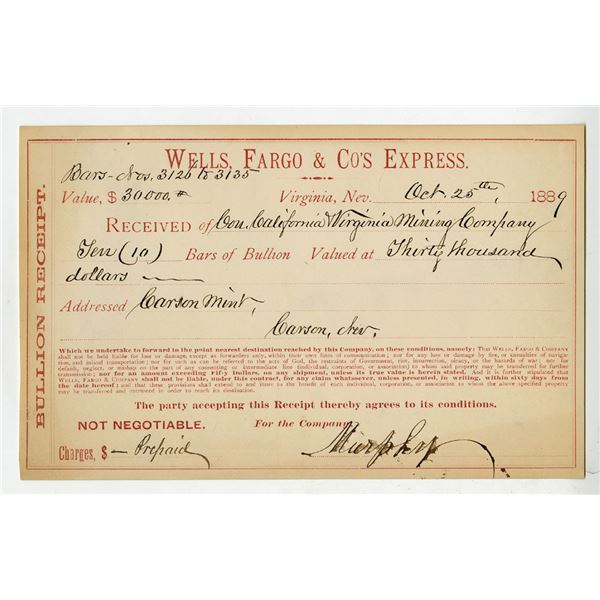 BULLION RECEIPT.
WELLS, FARGO & CO'S EXPRESS.
Bars - Nos. 3126 to 3135
Value, $ 30000. # Virginia, Nev. Oct. 25th, 1889
RECEIVED of Con. California & Virginia Mining Company
Ten (10) Bars of Bullion Valued at Thirty thousand
dollars
Addressed Carson Mint,
Carson, Nev.
Which we undertake to forward to the point nearest destination reached by this Company, on these conditions, namely: THAT WELLS, FARGO & COMPANY
shall not be held liable for loss or damage, except as forwarders only, within their own lines of communication; nor for any loss or damage by fire, or casualties of naviga-
tion, and inland transportation; nor for such as can be referred to the acts of God, the restraints of Government, riot, insurrection, piracy, or the hazards of war; nor for
default, neglect, or mishap on the part of any connecting or intermediate line (individual, corporation, or association) to whom said property may be transferred for further
transmission; nor for an amount exceeding Fifty Dollars, on any shipment, unless its true value is herein stated. And it is further stipulated that
WELLS, FARGO & COMPANY shall not be liable, under this contract, for any claim whatsoever, unless presented, in writing, within sixty days from
the date hereof; and that these provisions shall extend to and inure to the benefit of each individual, corporation, or association to whom the above specified property
may be entrusted and intermixed in order to reach its destination.
The party accepting this Receipt thereby agrees to its conditions.
NOT NEGOTIABLE. For the Company,
Charges, $ - Prepaid Murphy